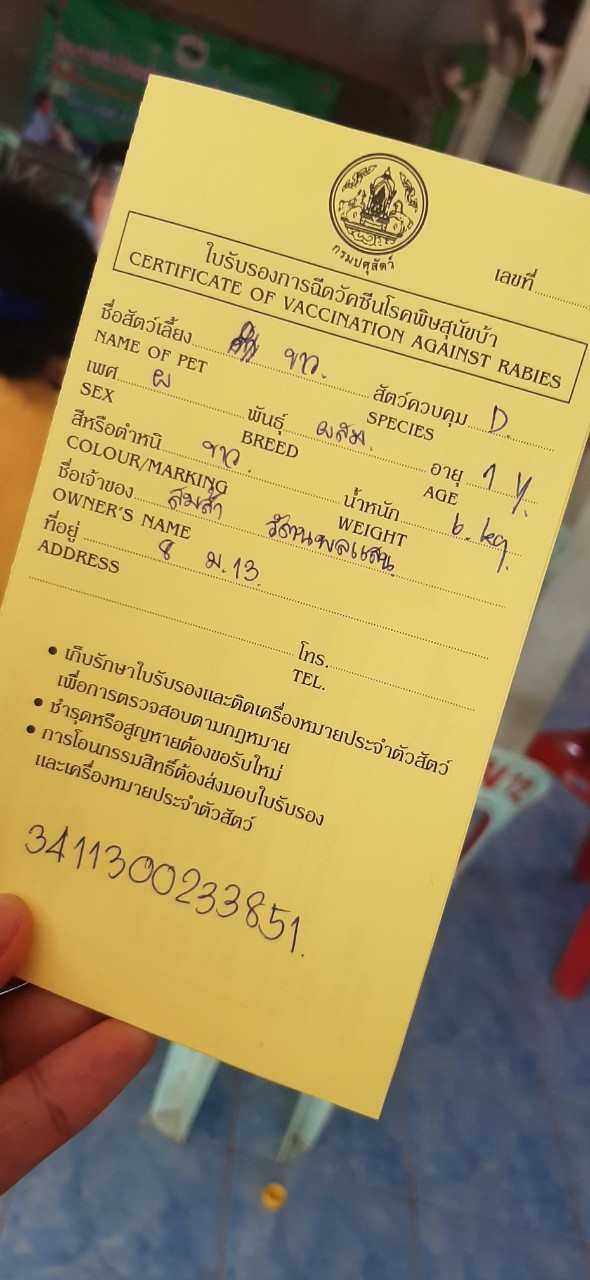 กรมปศุสัตว์
เลขที่
ใบรับรองการฉีดวัคซีนโรคพิษสุนัขบ้า
CERTIFICATE OF VACCINATION AGAINST RABIES
ชื่อสัตว์เลี้ยง ขาว. สัตว์ควบคุม D.
NAME OF PET SPECIES
เพศ ผ พันธุ์ ผสม. อายุ 1 Y.
SEX BREED AGE
สีหรือตำหนิ ขาว. น้ำหนัก 6. kg.
COLOUR/MARKING WEIGHT
ชื่อเจ้าของ
OWNER'S NAME
ที่อยู่ 8 ม.13.
ADDRESS
โทร.
TEL.
• เก็บรักษาใบรับรองและติดเครื่องหมายประจำตัวสัตว์
เพื่อการตรวจสอบตามกฎหมาย
• ชำรุดหรือสูญหายต้องขอรับใหม่
• การโอนกรรมสิทธิ์ต้องส่งมอบใบรับรอง
และเครื่องหมายประจำตัวสัตว์
3411300233851.